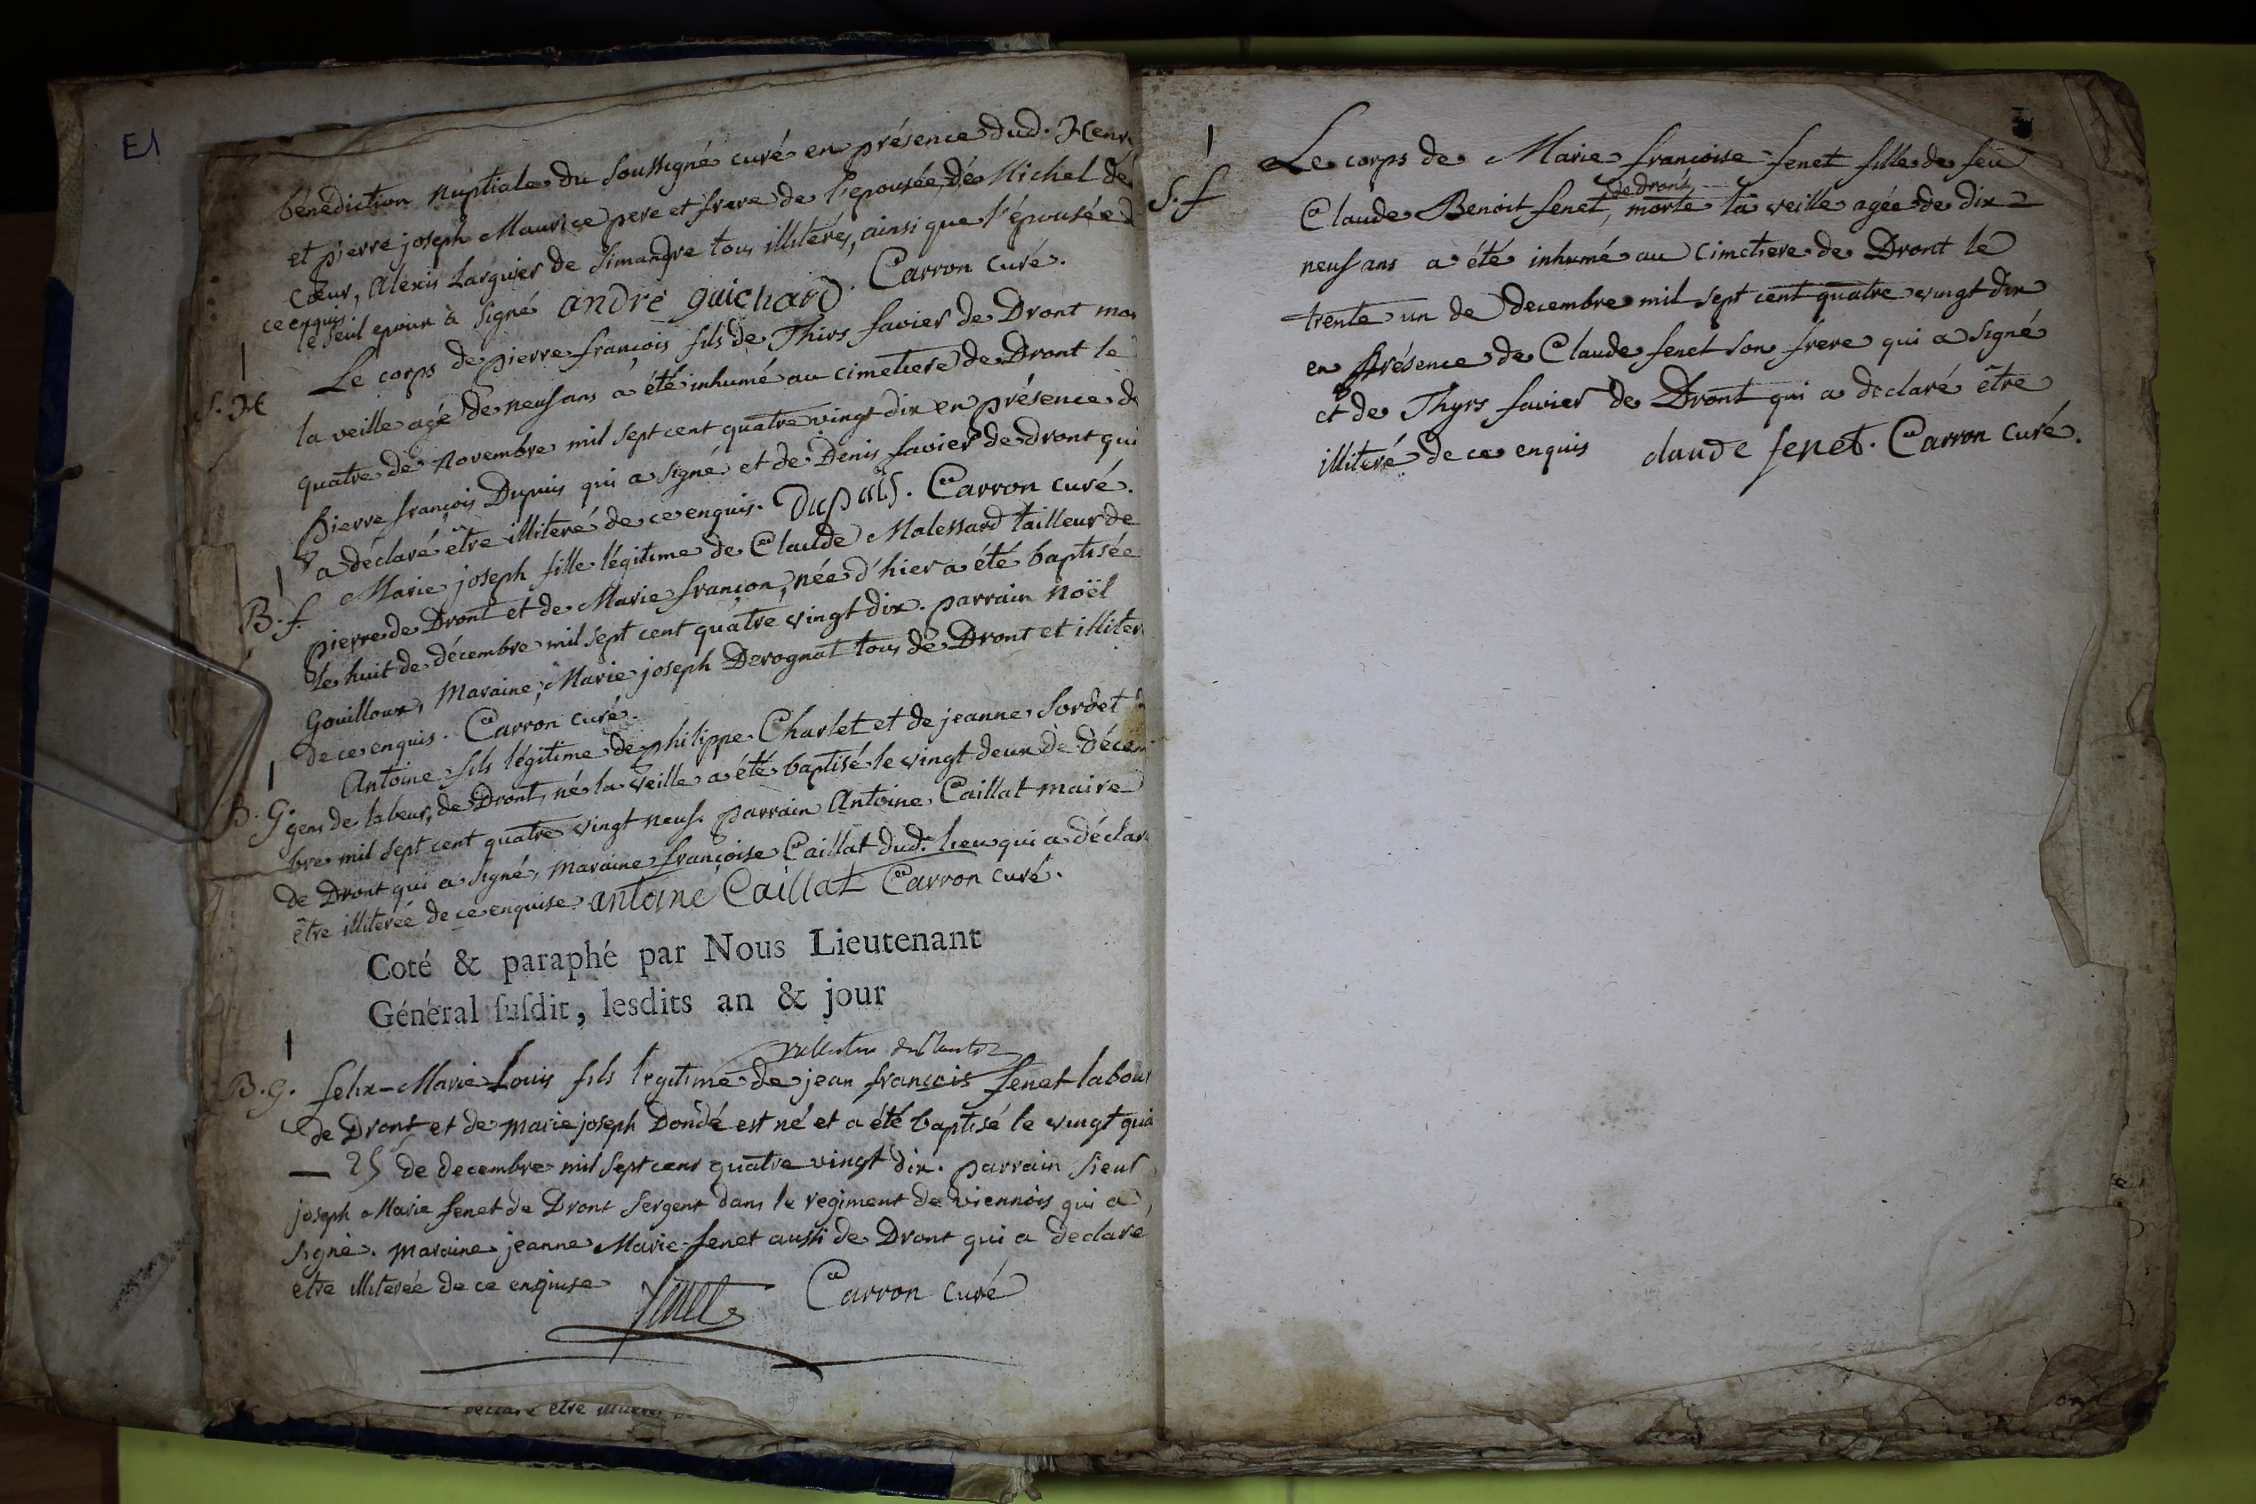 E1
bénédiction nuptiale du soussigné curé en présence dud. Henri
et pierre joseph Maurice pere et frere de l'epousée, de Michel de
Cœur, Alexis Larguier de Simandre tous illitérés, ainsi que l'épousée d
ce enquis
le seul epoux à signé andré guichard. Carron curé.
S. H
Le corps de pierre françois fils de Thirs favier de Dront mo
la veille agé de neuf ans a été inhumé au cimetiere de Dront le
quatre de novembre mil sept cent quatre vingt dix en présence de
pierre françois Dupuis qui a signé et de Denis favier de dront qui
a déclaré être illiteré de ce enquis. Dupuis. Carron curé.
B. f.
Marie joseph fille légitime de Claude Malessard tailleur de
pierre de Dront et de Marie françon, née d'hier a été baptisée
le huit de décembre mil sept cent quatre vingt dix. parrain noël
Gouilloux, Maraine, Marie joseph Derognat tous de Dront et illiter
de ce enquis. Carron curé.
B. G.
Antoine fils légitime de philippe Charlet et de jeanne Sordet
gens de labeur, de Dront, né la veille a été baptisé le vingt deux de décem
bre mil sept cent quatre vingt neuf. parrain Antoine Caillat maire
de Dront qui a signé, maraine françoise Caillat dud. lieu qui a déclar
être illiterée de ce enquise. antoine Caillat Carron curé.
Coté & paraphé par Nous Lieutenant
Général ſuſdit, lesdits an & jour
B. G.
felix-Marie-Louis fils legitime de jean françois fenet labour
de Dront et de marie joseph Dondé est né et a été baptisé le vingt qua
— 25 de decembre mil sept cent quatre vingt dix. parrain sieur
joseph Marie fenet de Dront sergent dans le regiment de viennois qui a
signé. maraine jeanne Marie fenet aussi de Dront qui a declaré
etre illiterée de ce enquise fenet Carron curé
declaré etre
S. f
Le corps de Marie françoise fenet fille de feü
Claude Benoit fenet, de Dront, morte la veille agée de dix
neuf ans a été inhumé au cimetiere de Dront le
trente un de decembre mil sept cent quatre vingt dix
en présence de Claude fenet son frere qui a signé
et de Thyrs favier de Dront qui a déclaré être
illiteré de ce enquis claude fenet. Carron curé.